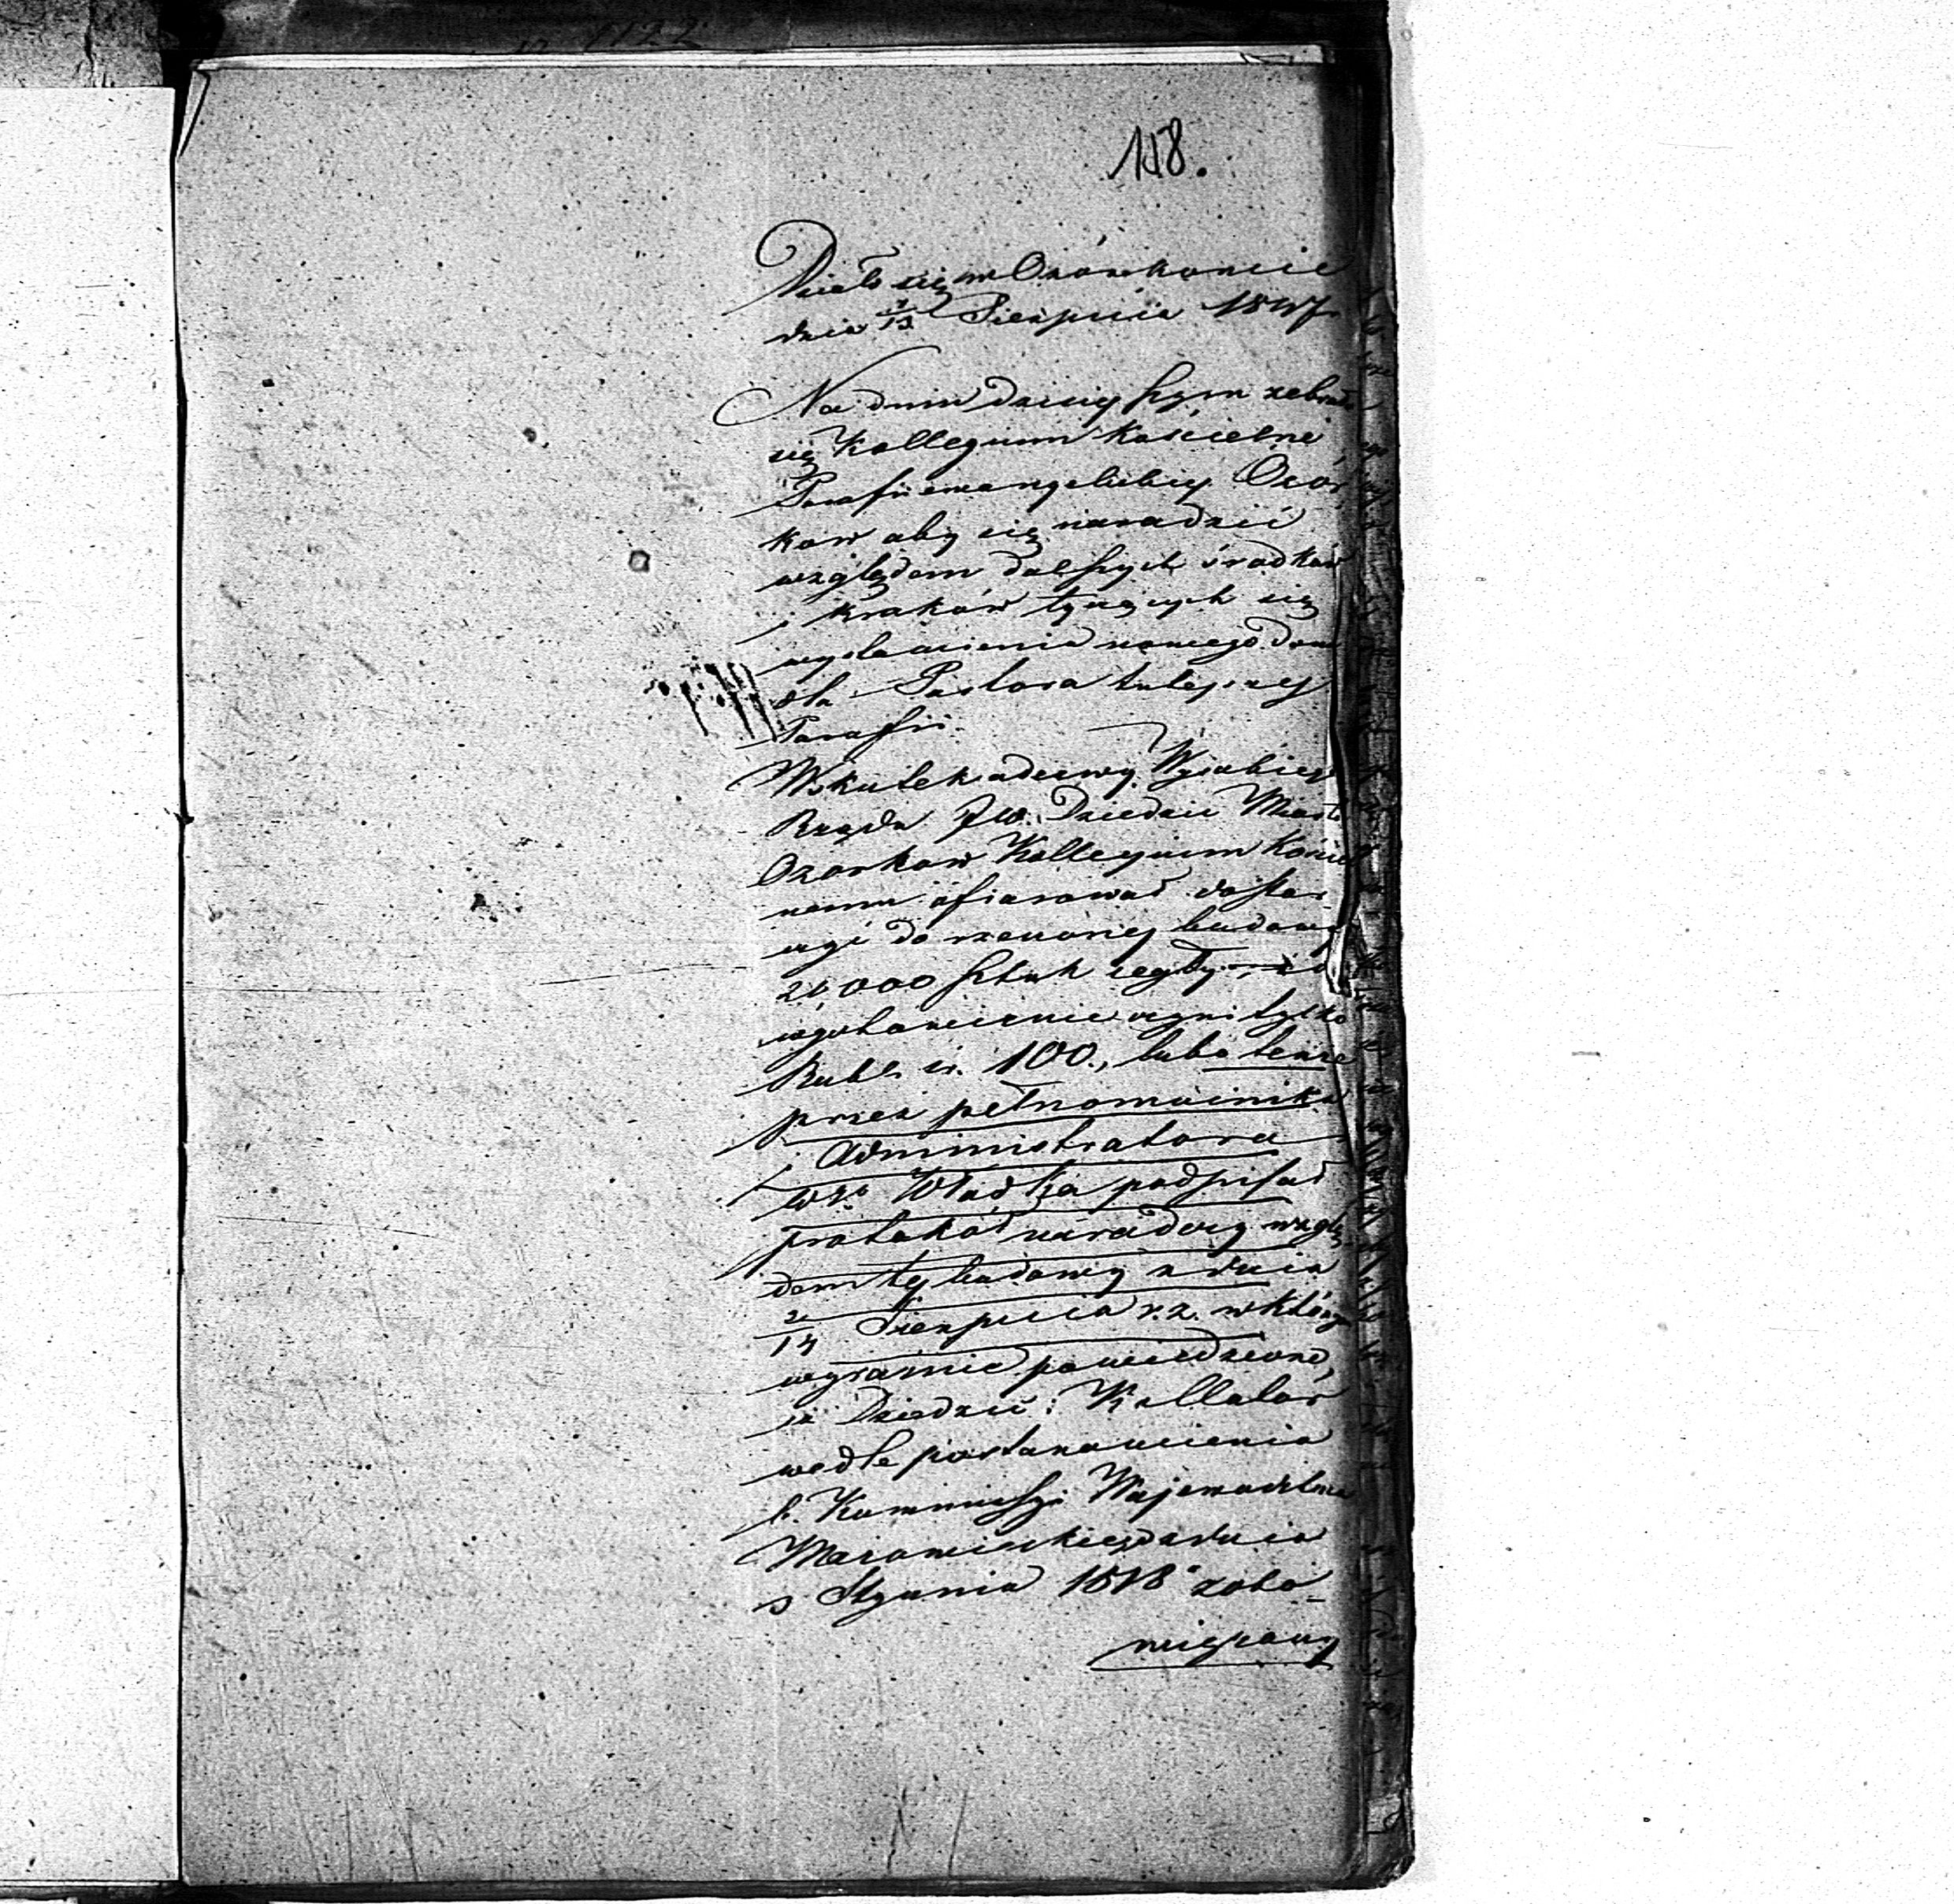 118.
Działo się w Ozórkowie
dnia 1/13 Sierpnia 1847.
Na dniu dzisiejszym zebrało
się Kollegium Kościelne
Parafii ewangelickiej Ozor
ków aby się naradzić
względem dalszych środków
i kroków tyczących się
wystawienia nowego domu
dla Pastora tutejszej
Parafii.
Wskutek odezwy Wysokiego
Rządu JW. Dziedzic Miasta
Ozorkow Kollegium Kościel
nemu ofiarował dostar
czyć do rzeczonej budowy
20,000 sztuk cegły, co
w gotowiznie czyni tylko
Rubl. sr. 100., lubo tenże
przez pełnomocnika
i Administratora
Wgo Władka podpisał
protokół naradczy wzglę
dem tej budowy z dnia
2/14 Sierpnia r. z. w którym
wyraźnie powiedziano,
iż Dziedzic i Kollator
wedle postanowienia
b. Kommissyi Wojewodztwa
Mazowieckiego z dnia
3 Stycznia 1818 zobo-
wiązany